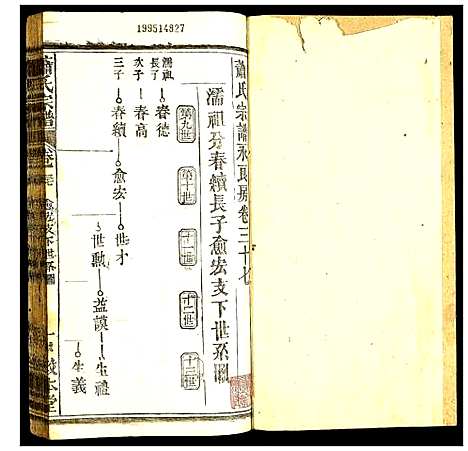 199514827
蕭氏宗譜永房卷三十七
濡祖分春績長子愈宏支下世系圖
第九世
第十世
十一世
十二世
十三世
濡祖
長子 春德
次子 春高
三子 春績 愈宏 世才
世勳 益謨 生禮
生義
蕭氏宗譜
愈宏支下世系圖
一